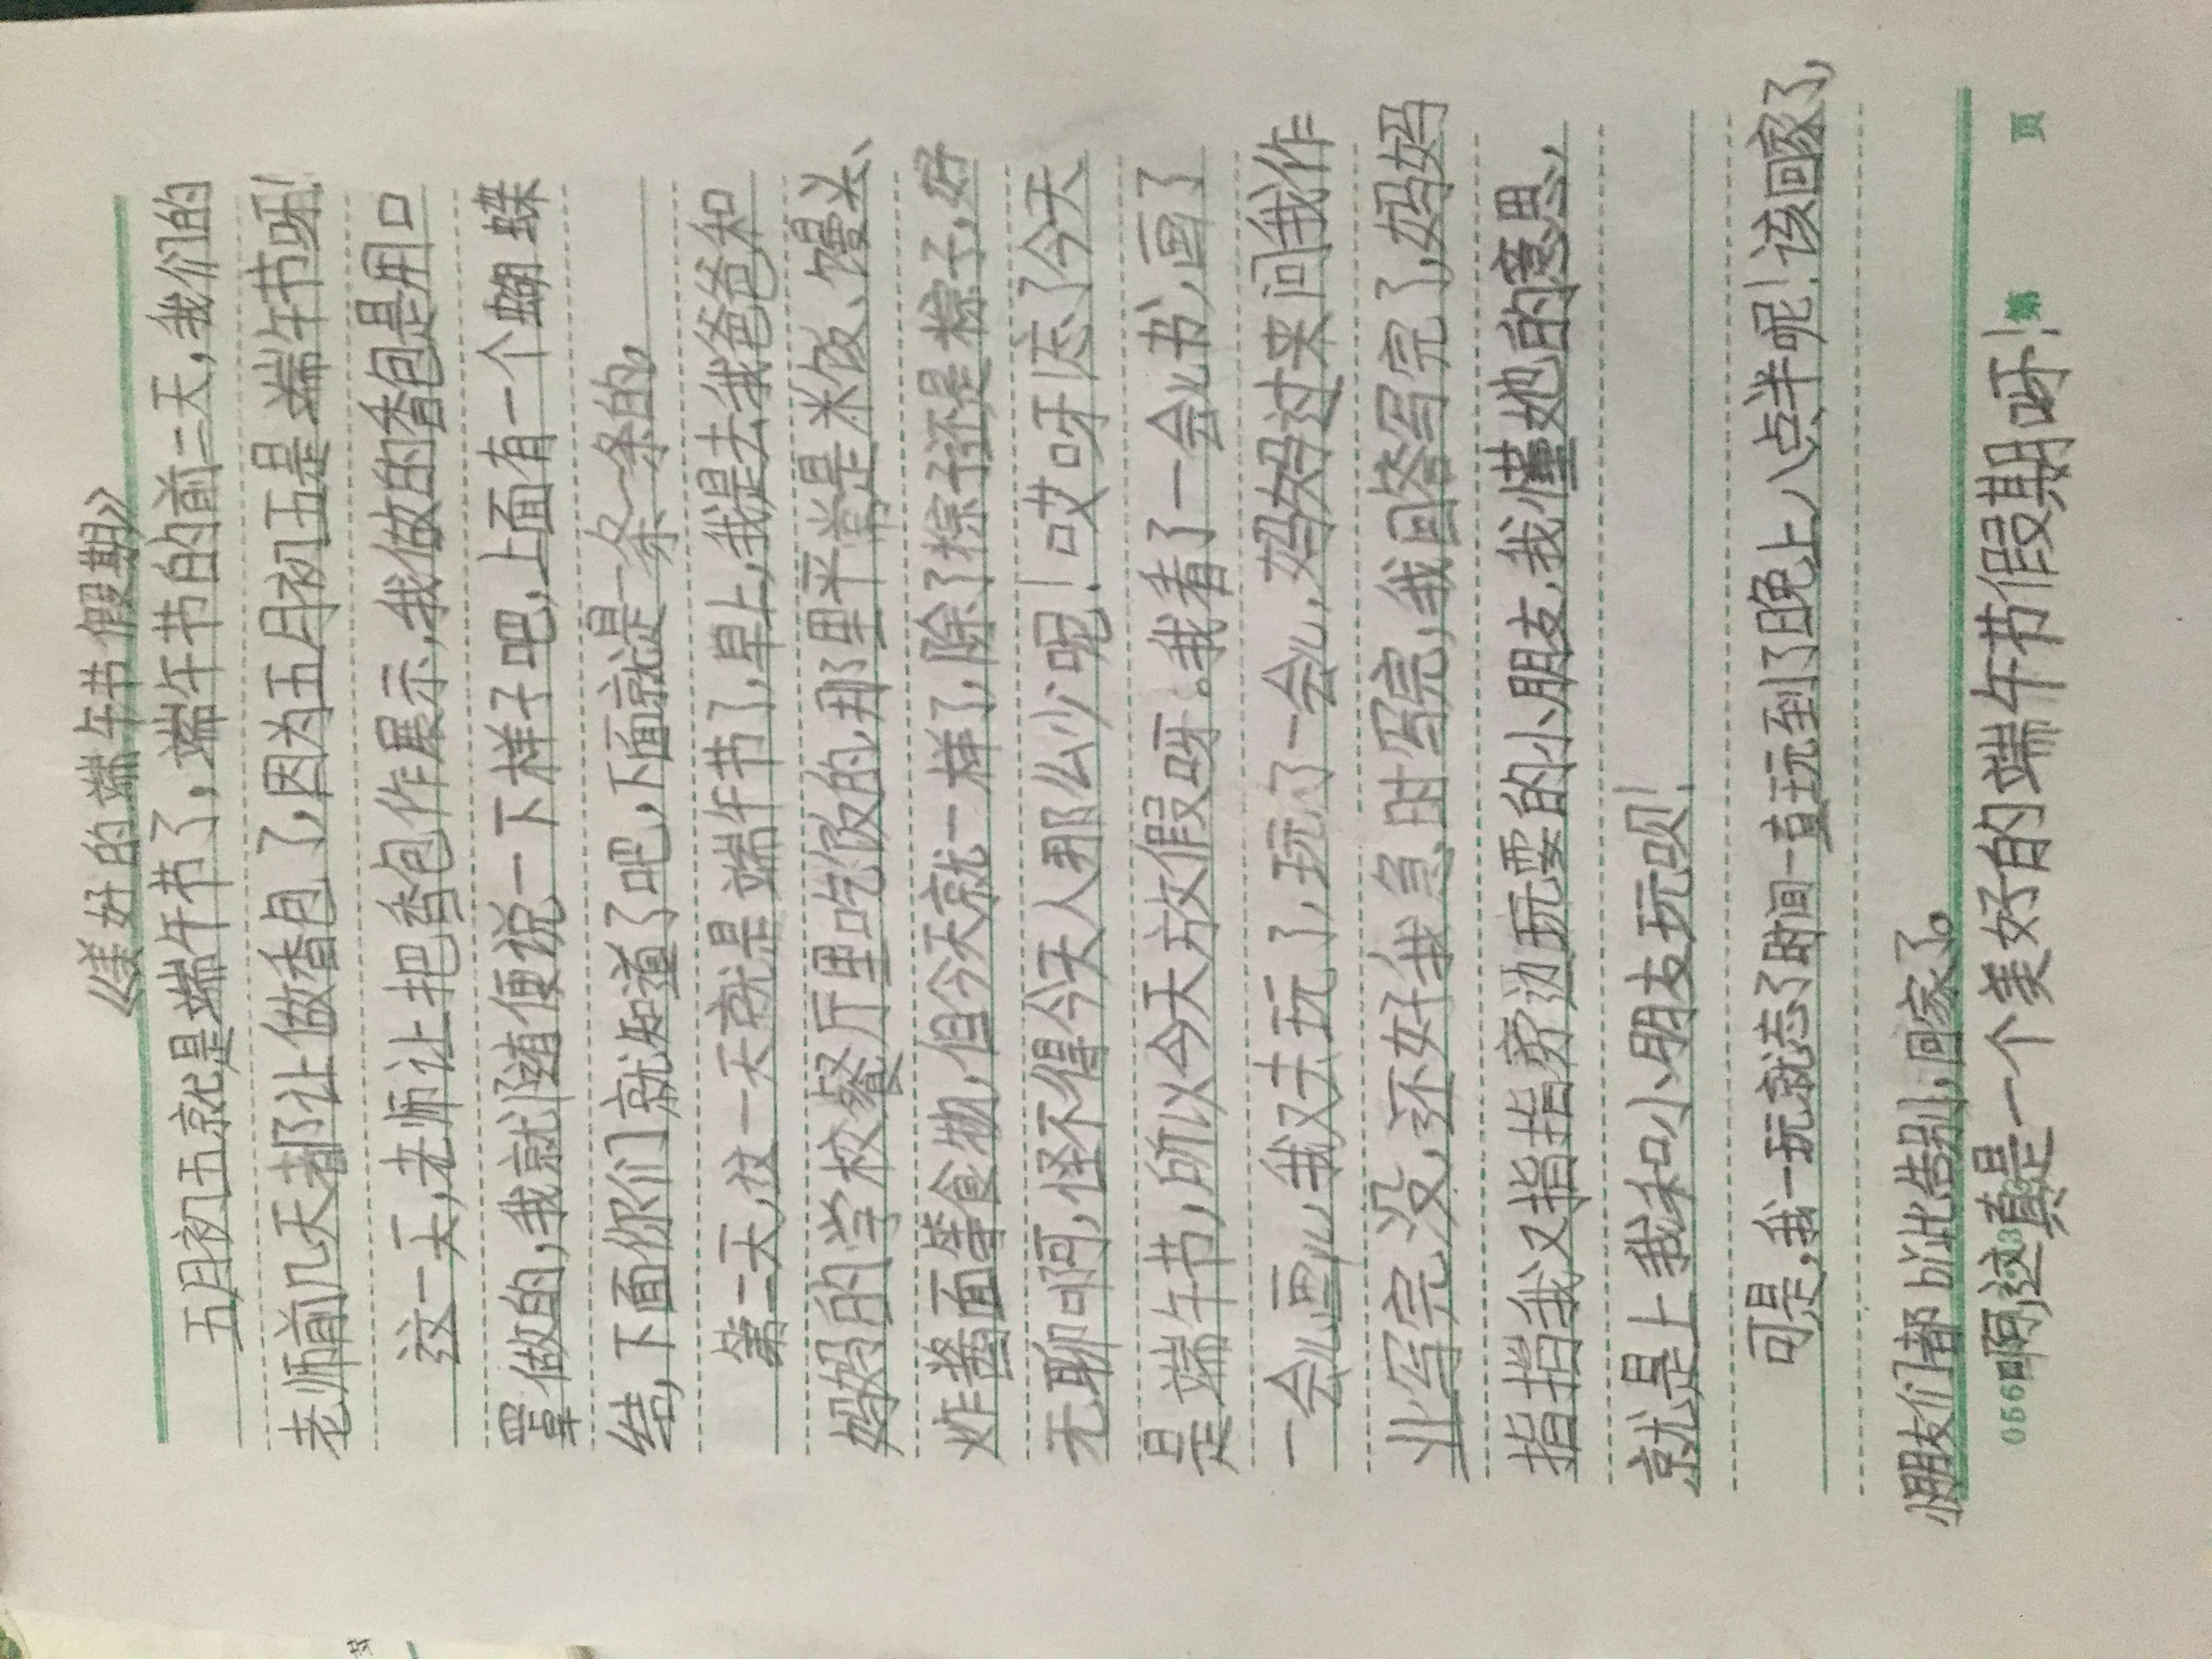 《美好的端午节假期》
五月初五就是端午节了，端午节的前二天，我们的
老师前几天都让做香包了，因为五月初五是端午节呀！
这一天，老师让把香包作展示，我做的香包是用口
罩做的，我就随便说一下样子吧，上面有一个蝴蝶
结，下面你们就知道了吧，下面就是一条一条的。
第二天，这一天就是端午节了，早上，我是去我爸爸和
妈妈的学校餐厅里吃饭的，那里平常是米饭、馒头、
炸酱面等食物，但今天就一样了，除了粽子还是粽子，好
无聊啊，怪不得今天人那么少呢！哎呀忘了今天
是端午节，所以今天放假呀。我看了一会儿书，画了
一会儿画儿，我又去玩了，玩了一会儿，妈妈过来问我作
业写完没，还好我急时写完，我回答写完了，妈妈
指指我又指指旁边玩耍的小朋友，我懂她的意思，
就是上我和小朋友玩呗！
可是，我一玩就忘了时间一直玩到了晚上八点半呢！该回家了，
小朋友们都比此告别，回家了。
啊，这真是一个美好的端午节假期呀！
第 页